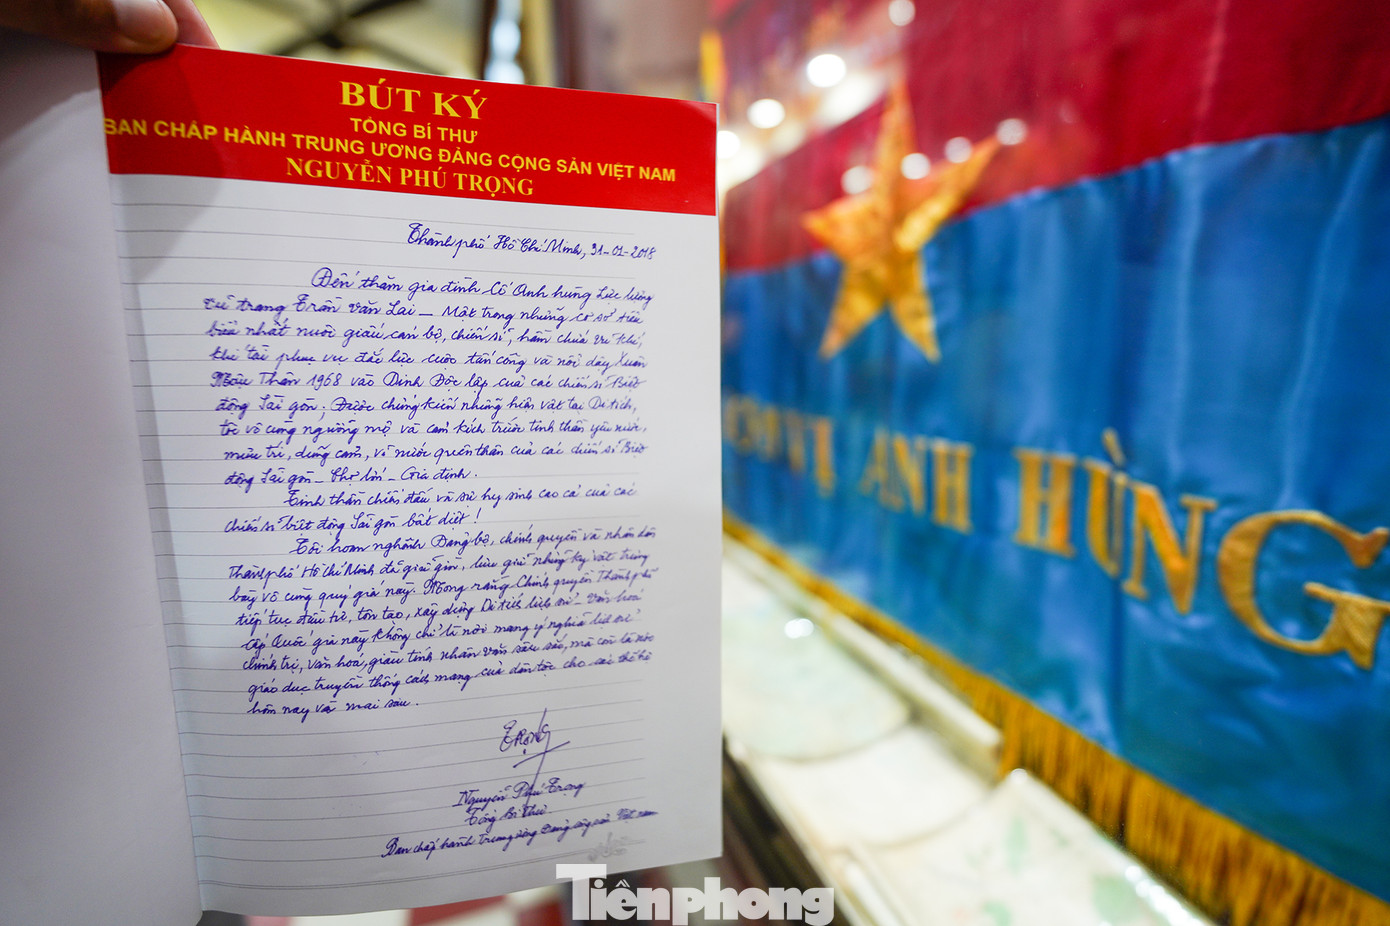 BÚT KÝ
TỔNG BÍ THƯ
BAN CHẤP HÀNH TRUNG ƯƠNG ĐẢNG CỘNG SẢN VIỆT NAM
NGUYỄN PHÚ TRỌNG
Thành phố Hồ Chí Minh, 31-01-2018
Đến thăm gia đình Cố Anh hùng Lực lượng
vũ trang Trần Văn Lai – Một trong những cơ sở tiêu
biểu nhất nuôi giấu cán bộ, chiến sĩ, hầm chứa vũ khí,
khí tài phục vụ đắc lực cuộc tấn công và nổi dậy Xuân
Mậu Thân 1968 vào Dinh Độc lập của các chiến sĩ Biệt
động Sài gòn. Được chứng kiến những hiện vật tại Di tích,
tôi vô cùng ngưỡng mộ và cảm kích trước tinh thần yêu nước,
mưu trí, dũng cảm, vì nước quên thân của các chiến sĩ Biệt
động Sài gòn – Chợ lớn – Gia định.
Tinh thần chiến đấu và sự hy sinh cao cả của các
chiến sĩ biệt động Sài gòn bất diệt!
Tôi hoan nghênh Đảng bộ, chính quyền và nhân dân
Thành phố Hồ Chí Minh đã giữ gìn, lưu giữ những kỷ vật trưng
bày vô cùng quý giá này. Mong rằng Chính quyền Thành phố
tiếp tục đầu tư, tôn tạo, xây dựng Di tích lịch sử – Văn hoá
cấp Quốc gia này không chỉ là nơi mang ý nghĩa lịch sử
chính trị, văn hoá, giàu tính nhân văn sâu sắc, mà còn là nơi
giáo dục truyền thống cách mạng của dân tộc cho các thế hệ
hôm nay và mai sau.
Trọng
Nguyễn Phú Trọng
Tổng Bí thư
Ban chấp hành Trung ương Đảng cộng sản Việt nam
ĐƠN VỊ ANH HÙNG
Tiềnphong